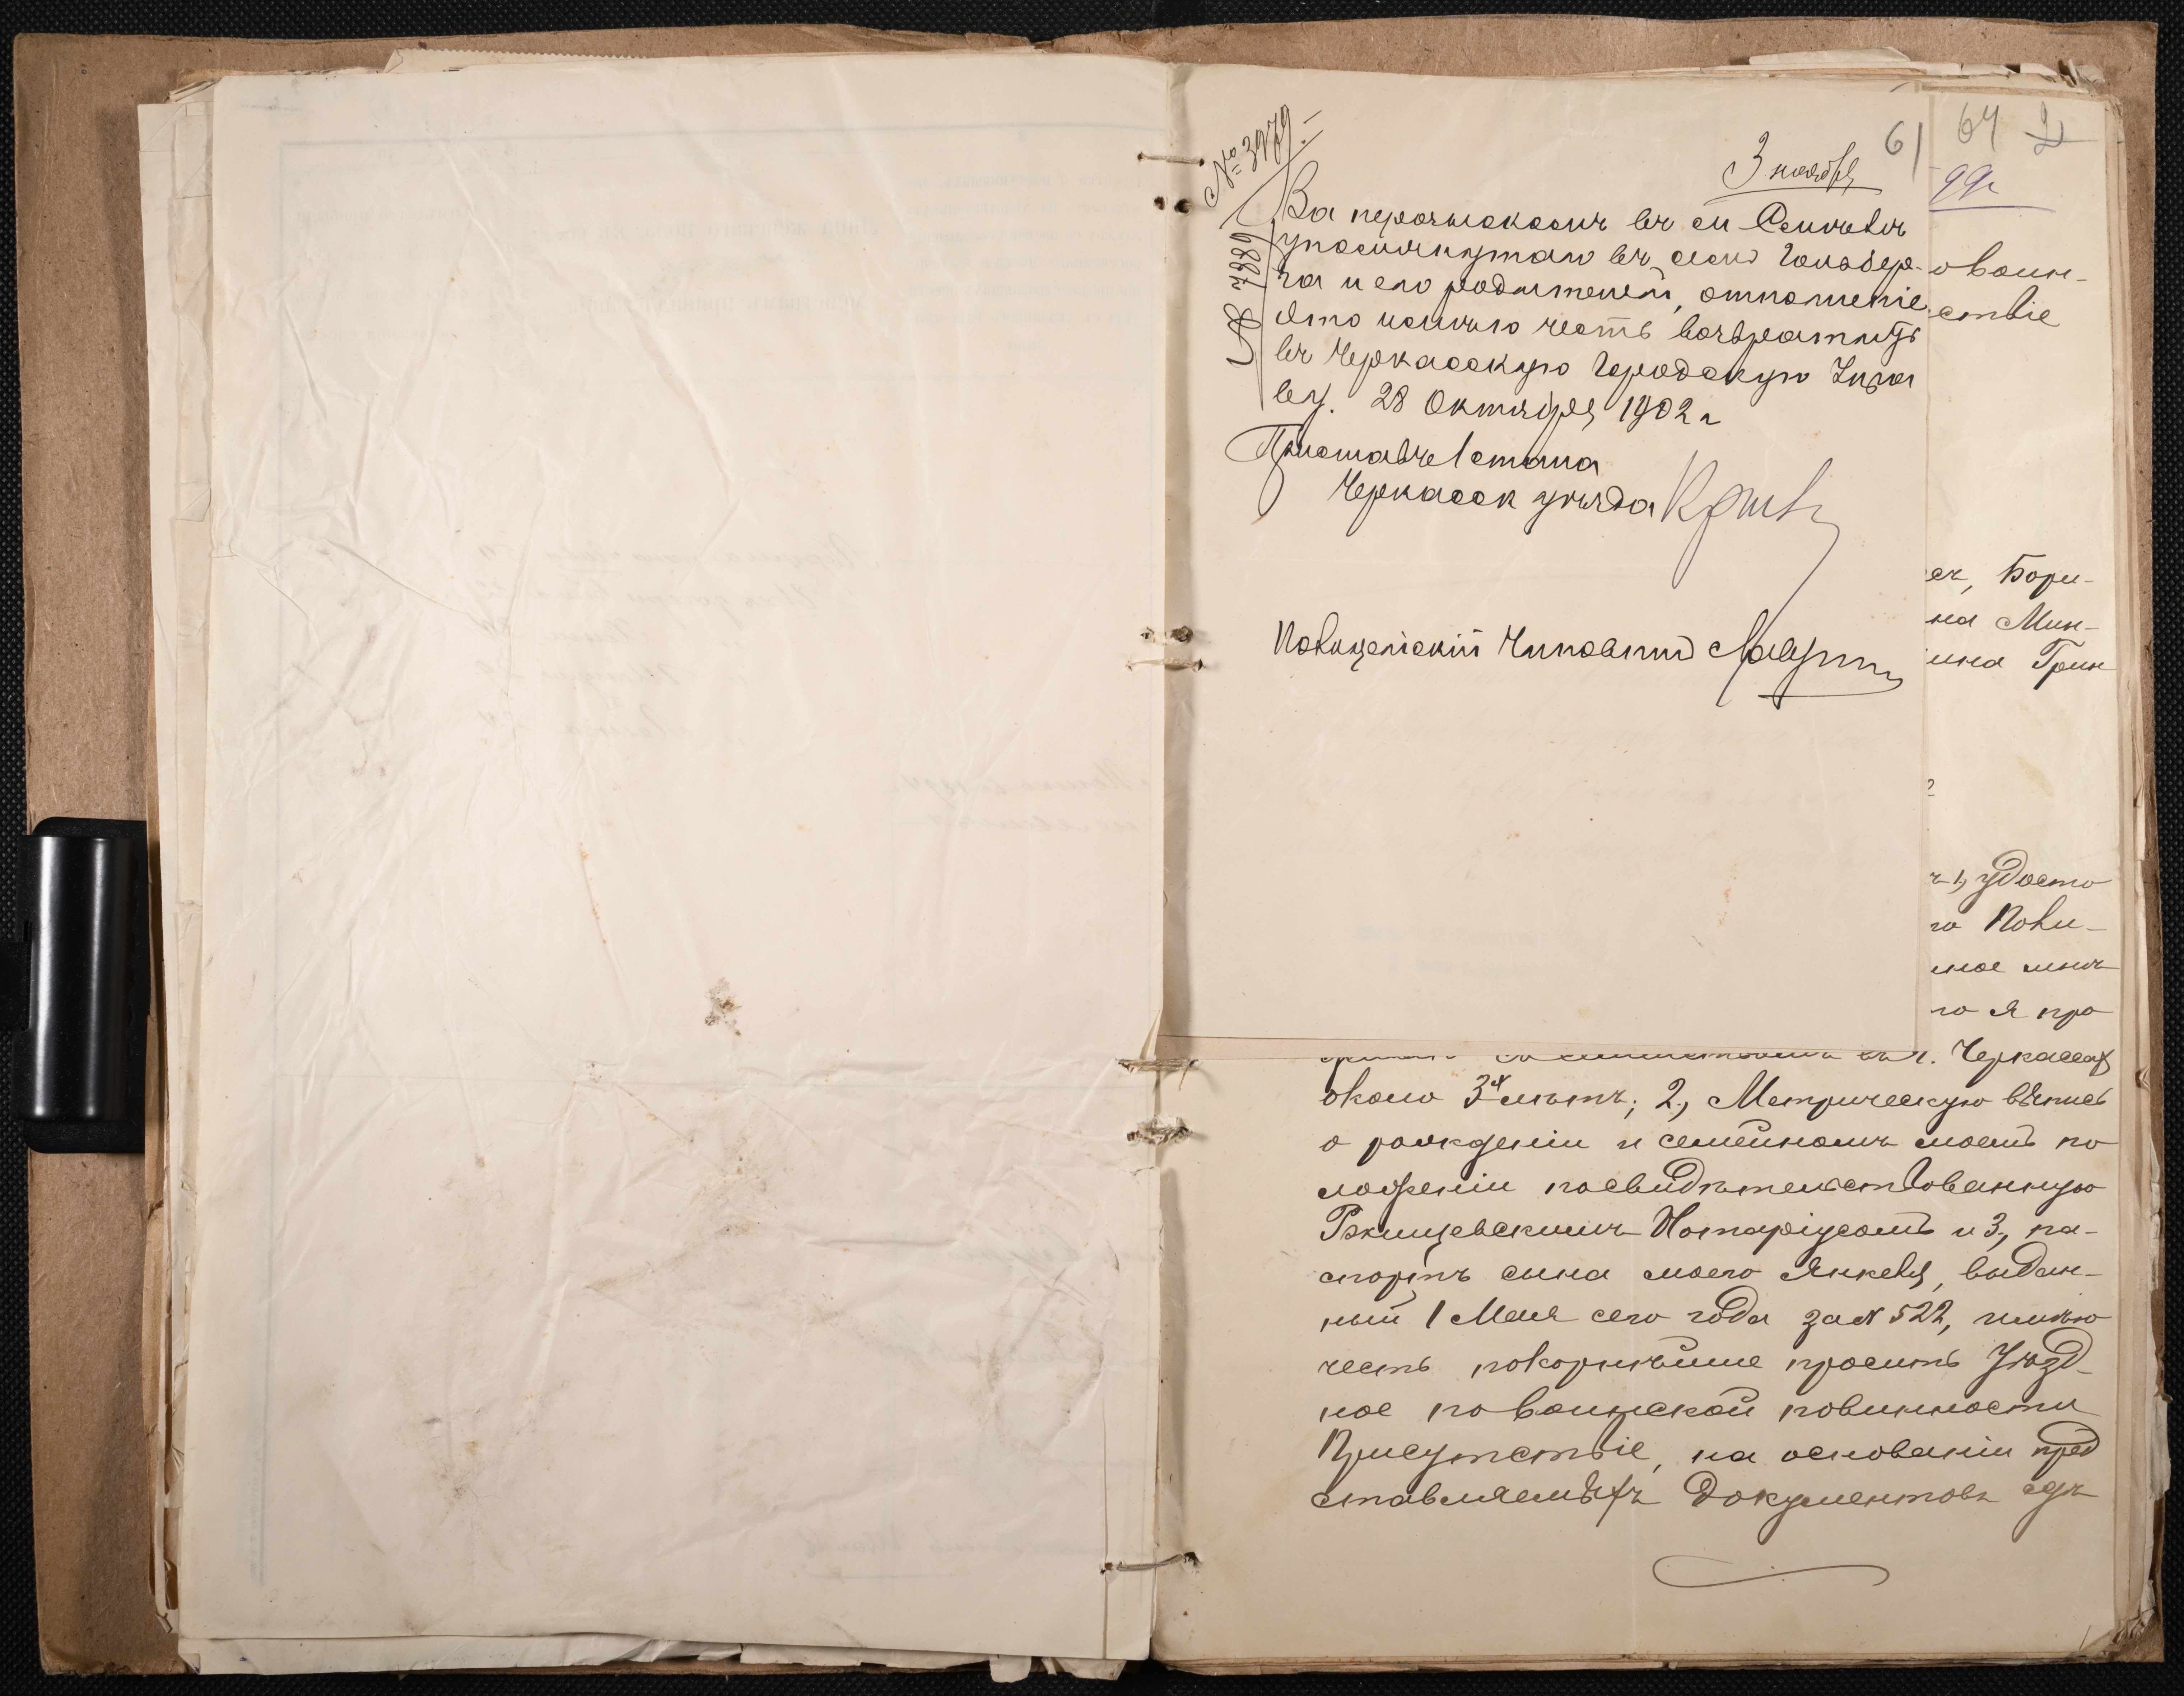 № 3979.
61
64
99
3 ноября
№ 7889
За нерозысканіемъ въ м Смѣлѣ
упомянутаго въ семъ Гольдбер-
га и его родителей, отношеніе
это имѣю честь возвратить
въ Черкасскую Городскую Упра
ву. 28 Октября 1902 г
Приставъ 1 стана
Черкасск уѣзда
Полицейскій Чиновникъ
о воин-
ствіе
ъ, Бори-
на Мин-
ина Грин
1, удосто
го Поли-
ное мнѣ
го я про
въ г. Черкасахъ
около 3х лѣтъ; 2, Метрическую выпись
о рожденіи и семейномъ моемъ по
ложеніи посвидѣтельствованную
Ржищевскимъ Нотаріусомъ и 3, па-
спортъ сына моего Янкеля, выдан-
ный 1 Мая сего года за № 522, имѣю
честь покорнѣйше просить Уѣзд-
ное по воинской повинности
Присутствіе, на основаніи пред
ставляемыхъ документовъ